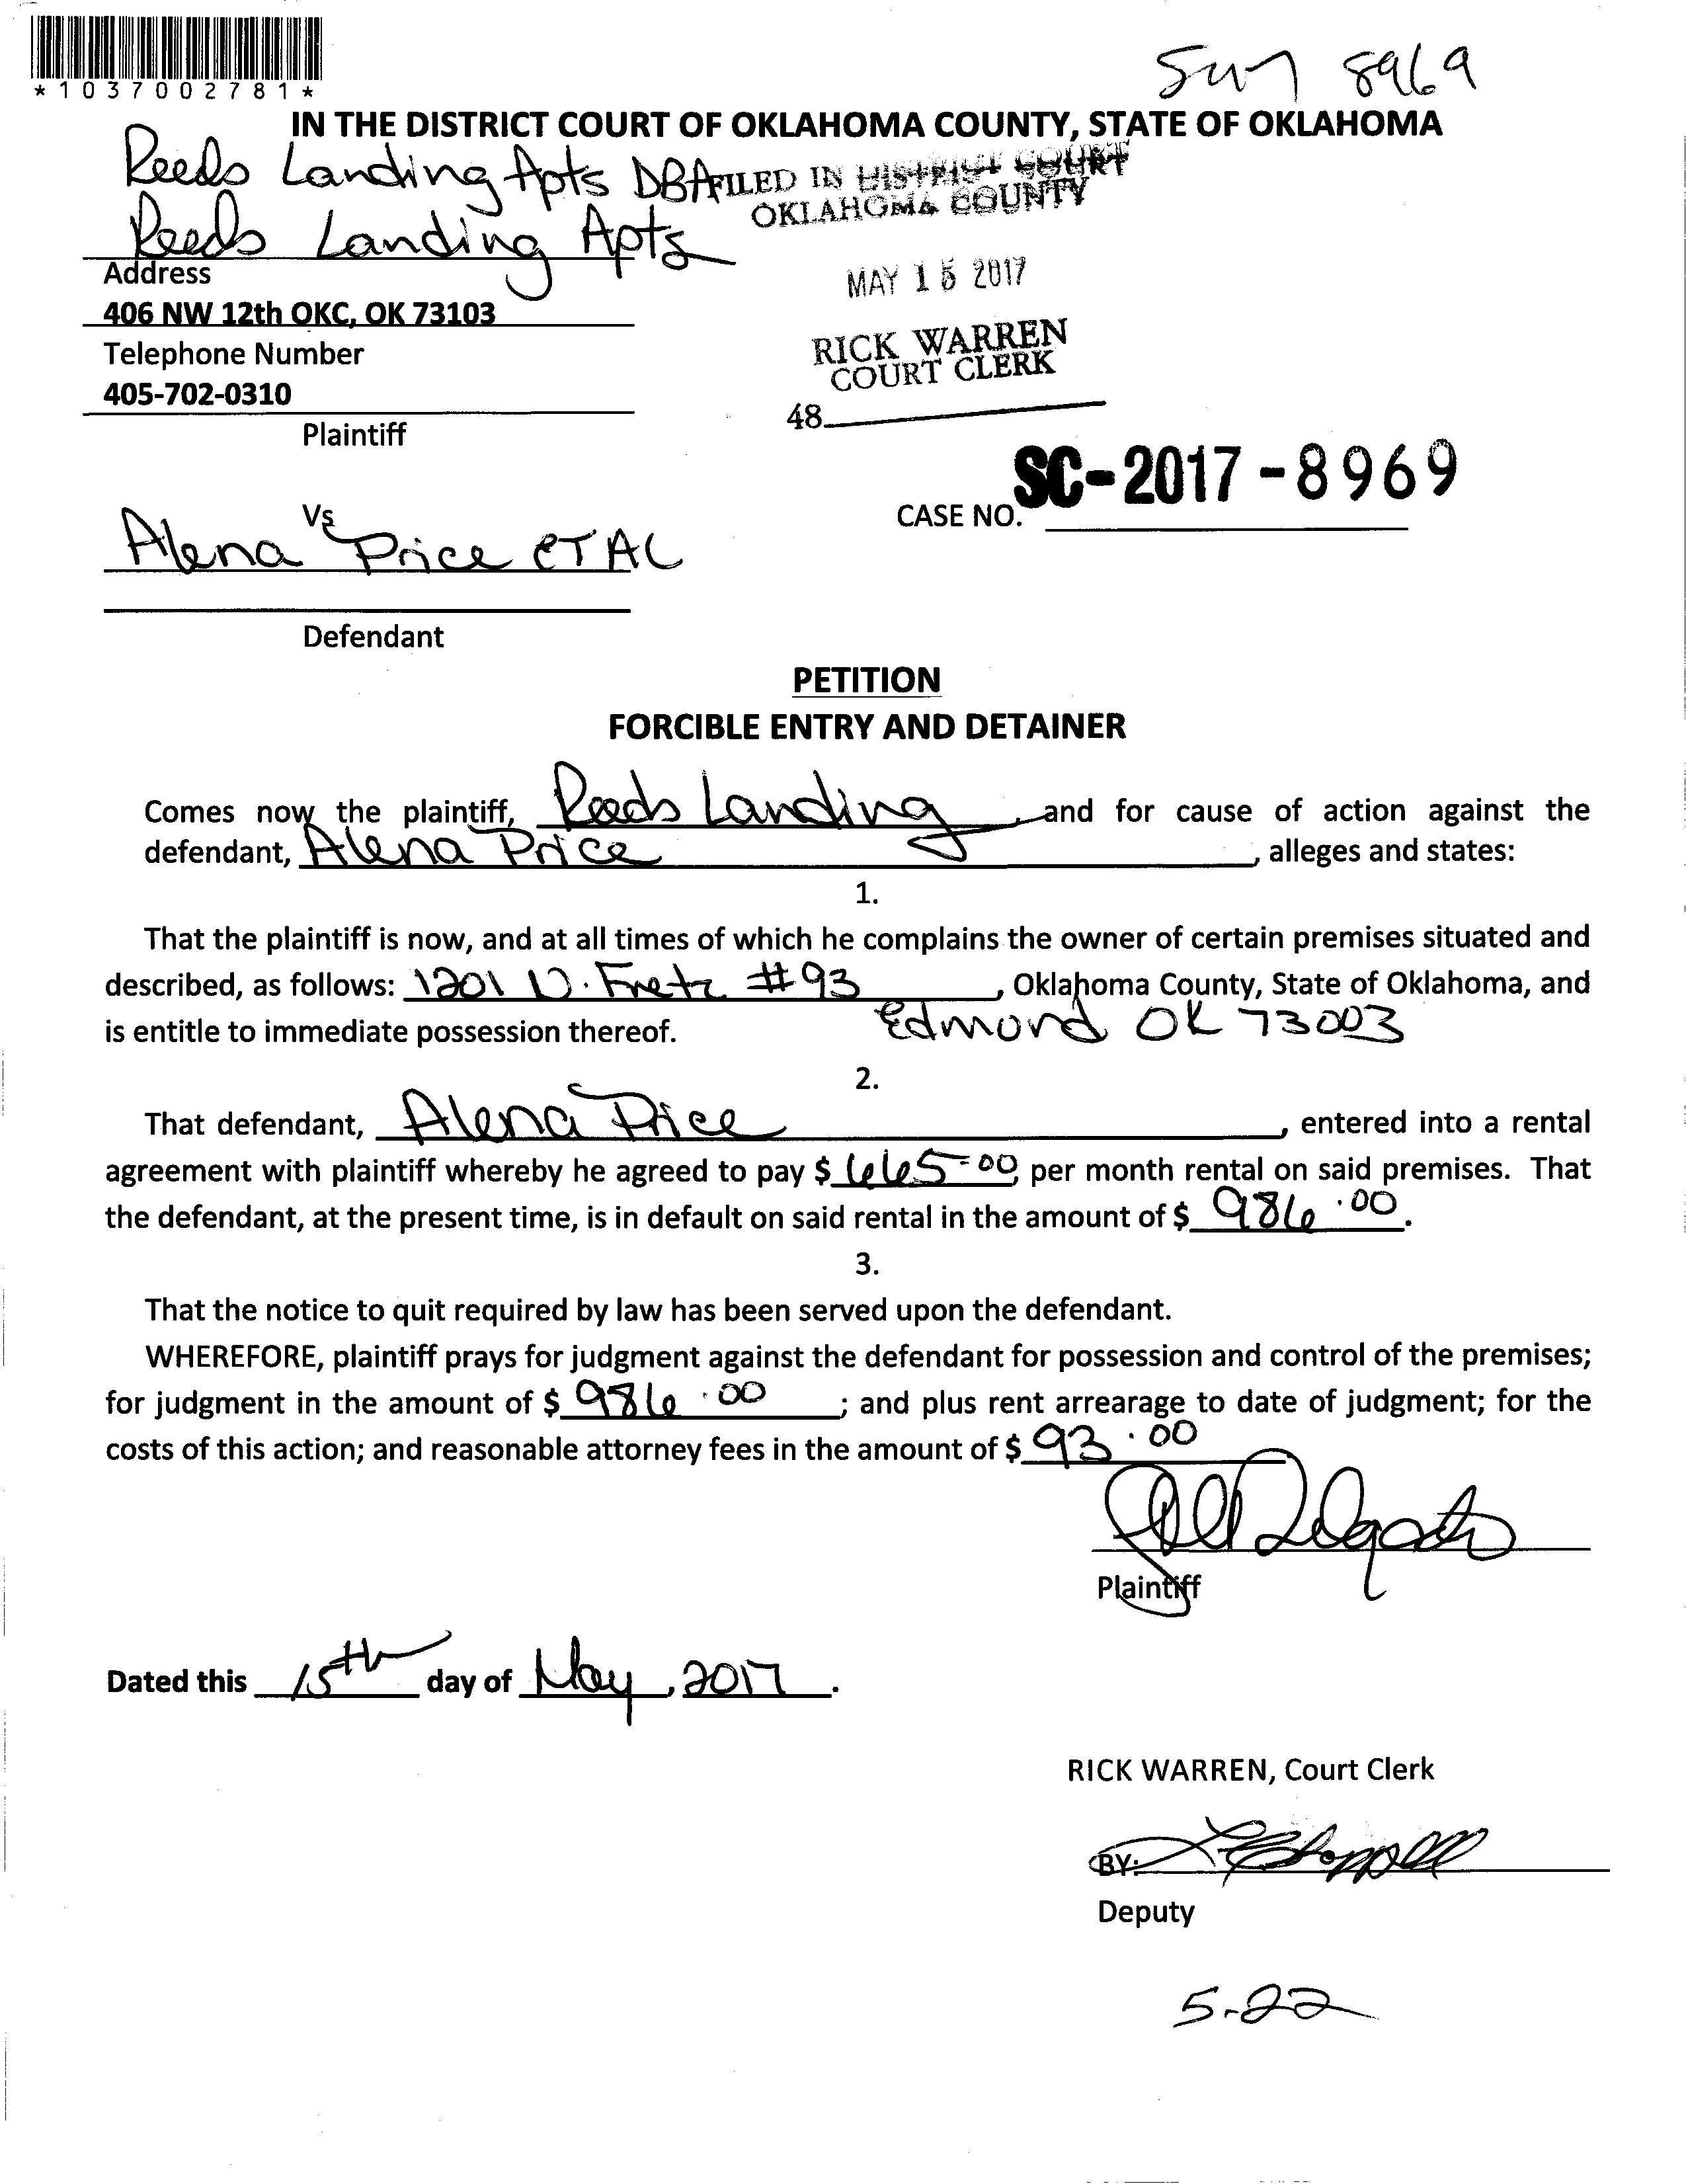 *1037002781*
8969
IN THE DISTRICT COURT OF OKLAHOMA COUNTY, STATE OF OKLAHOMA
Reeds Landing Apts DBA
FILED IN DISTRICT COURT
OKLAHOMA COUNTY
Reeds Landing Apts
Address
MAY 15 2017
406 NW 12th OKC, OK 73103
Telephone Number
RICK WARREN
COURT CLERK
405-702-0310
48
Plaintiff
SC-2017-8969
CASE NO.
Vs
Alena Price ETAL
Defendant
PETITION
FORCIBLE ENTRY AND DETAINER
Comes now the plaintiff, Reeds Landing, and for cause of action against the
defendant, Alena Price, alleges and states:
1.
That the plaintiff is now, and at all times of which he complains the owner of certain premises situated and
described, as follows: 1201 N. Fretz #93, Oklahoma County, State of Oklahoma, and
is entitle to immediate possession thereof. Edmond OK 73003
2.
That defendant, Alena Price, entered into a rental
agreement with plaintiff whereby he agreed to pay $ 665.00, per month rental on said premises. That
the defendant, at the present time, is in default on said rental in the amount of $ 986.00.
3.
That the notice to quit required by law has been served upon the defendant.
WHEREFORE, plaintiff prays for judgment against the defendant for possession and control of the premises;
for judgment in the amount of $ 986.00; and plus rent arrearage to date of judgment; for the
costs of this action; and reasonable attorney fees in the amount of $ 93.00
Plaintiff
Dated this 15th day of May, 2017.
RICK WARREN, Court Clerk
BY:
Deputy
5-22